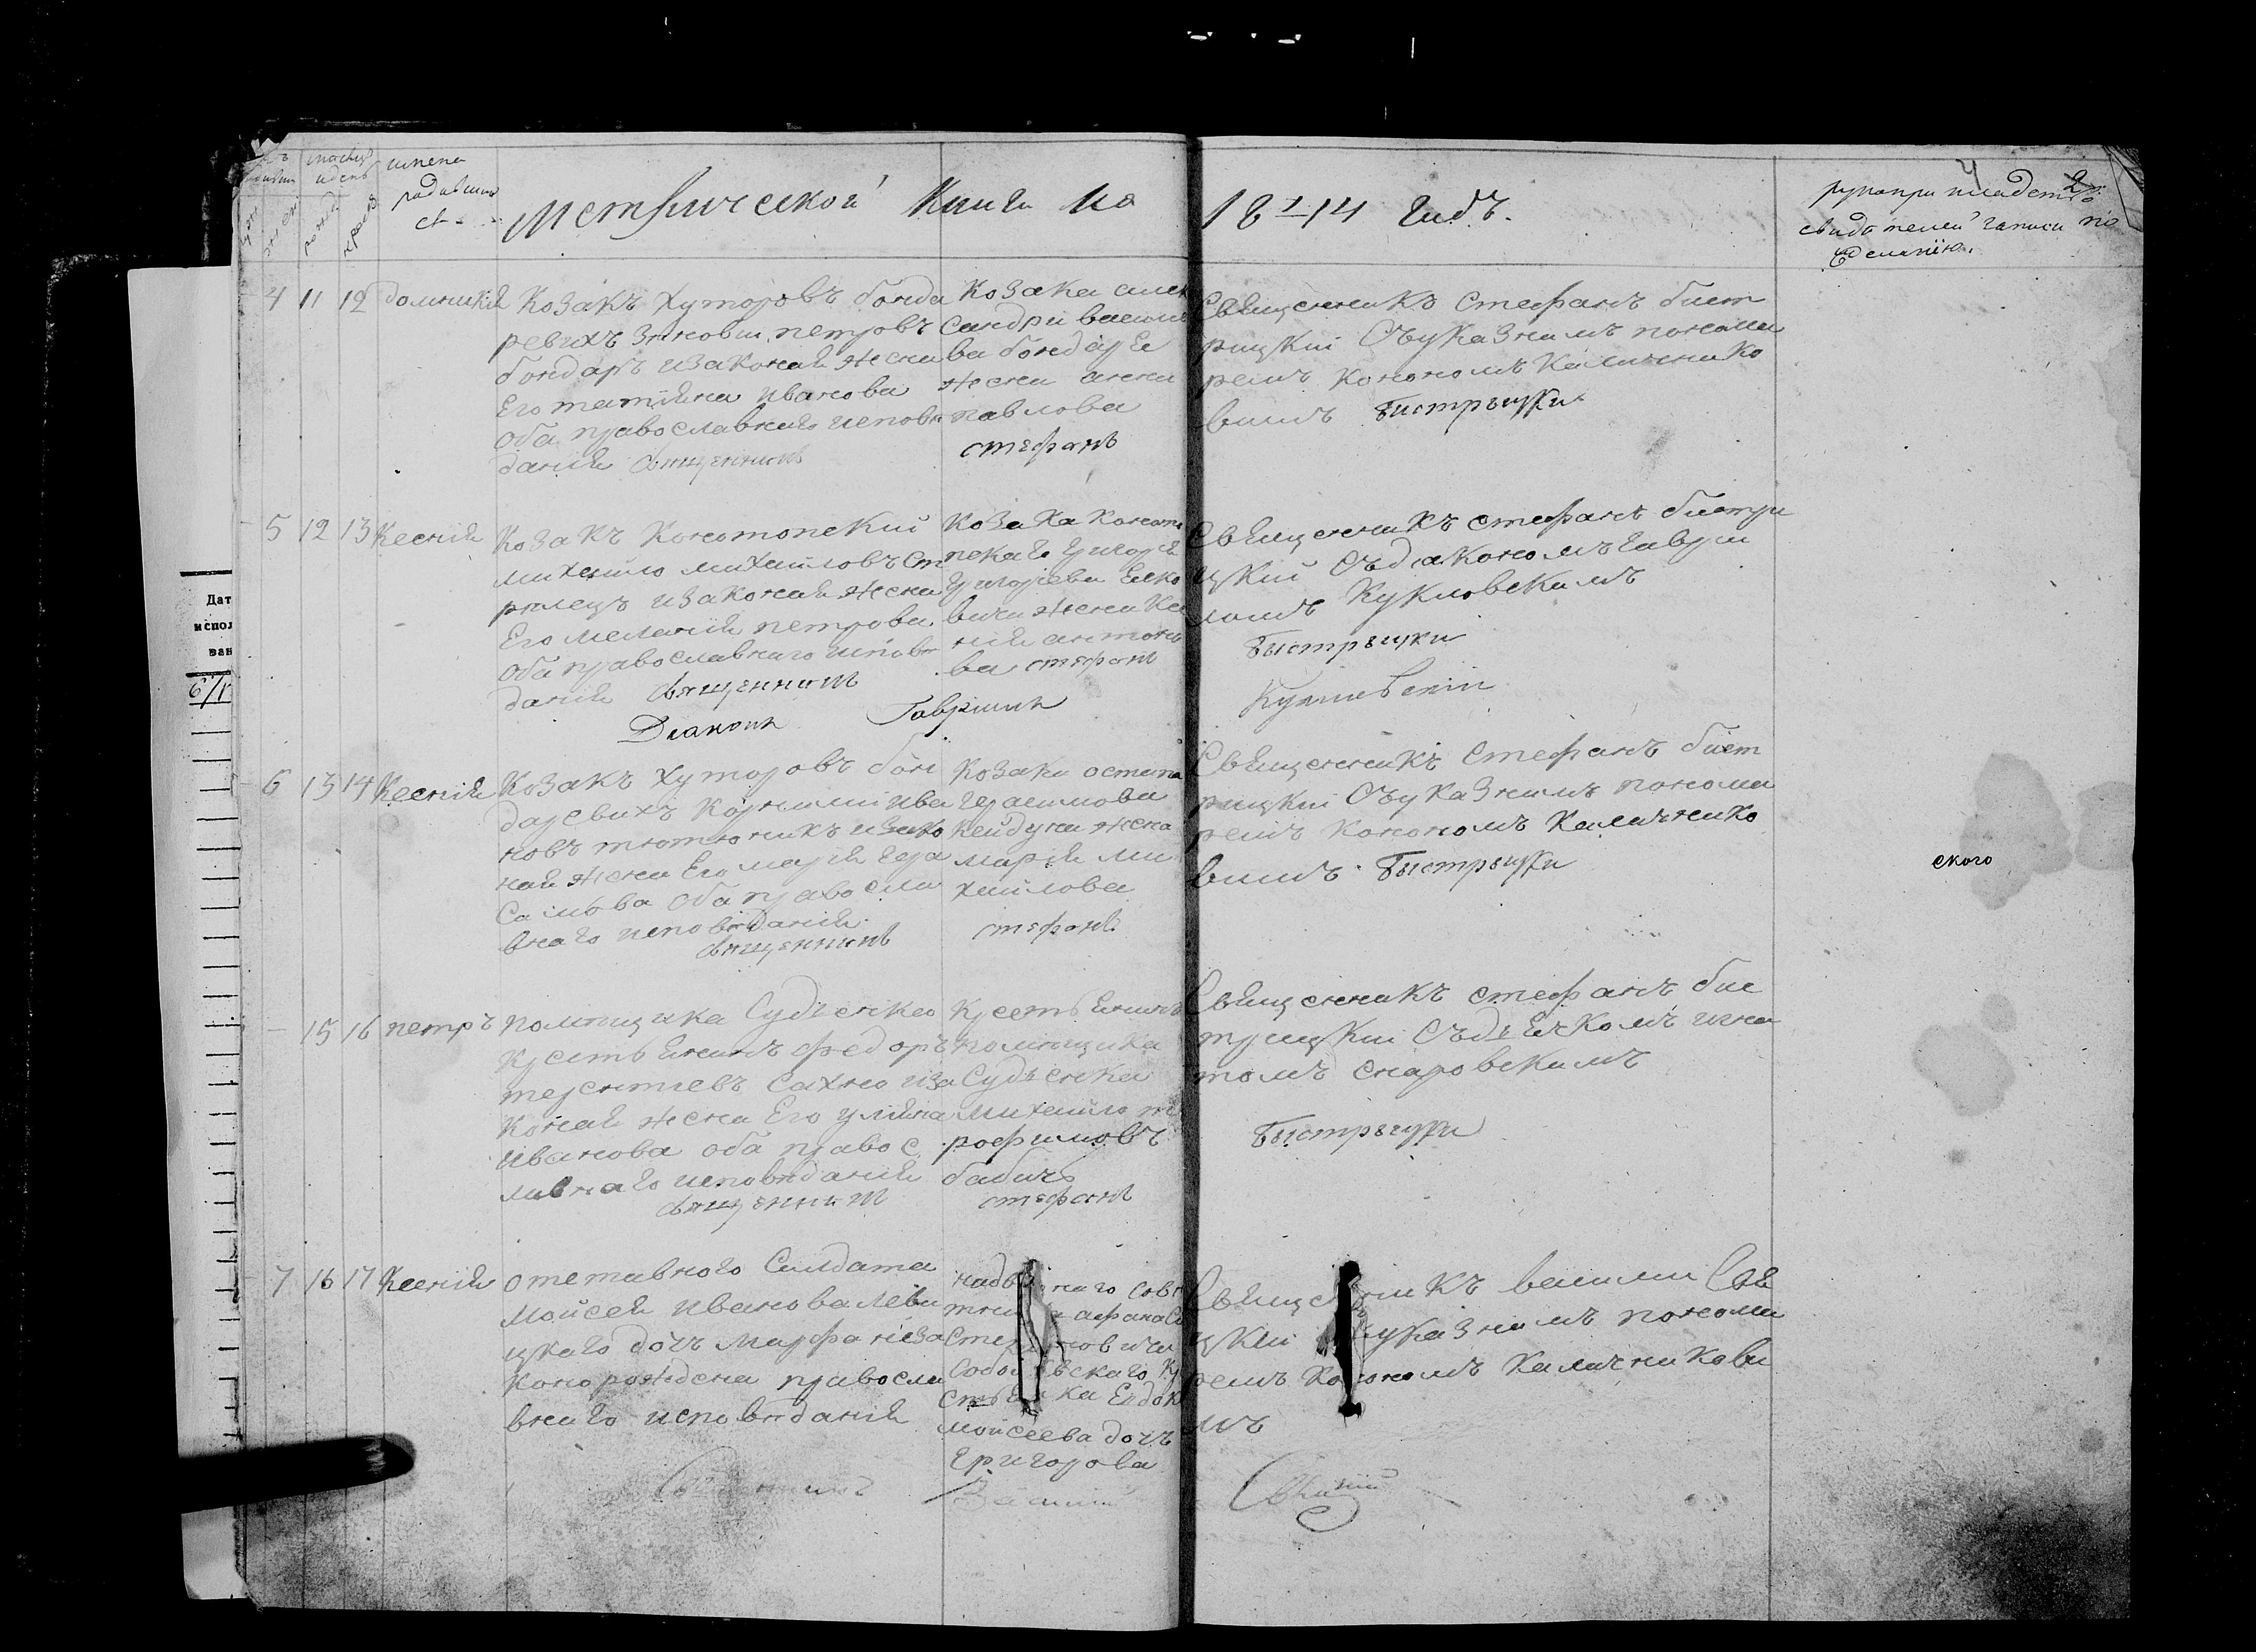 имена
родившихъ
ся
Метрической Книги на 1844 годъ.
рукоприкладство
свидѣтелей записи по
желанію.
4 11 12 Домникія
Козакъ Хуторовъ бонда
ревихъ Зѣновій петровъ
бондарь изаконая жена
Его татіяна Иванова
оба православнаго исповѣ
данія Священникъ
Козака алек
сандри васильѣ
ва бондарЕ
жена анна
павлова
Стефанъ
Священникъ Стефанъ бист
рицкій Съуказнимъ понома
ремъ Конономъ Каличенко
вимъ Быстрѣцки
5 12 13 Ксенія
Козакъ Конотопскій
михайло михайловъ Ст
рѣлецъ изаконая жена
Его меланія петрова
оба православнаго исповѣ
данія Священникъ
Діаконъ
Козака Коното
пскаго григорЕ
григорЕва Еско
вича жена Ксе
нія антоно
ва Стефанъ
Гавріилъ
Священникъ Стефанъ бистри
цкій Съдіакономъ гаврии
ломъ Кукловскимъ
Быстрѣцки
6 13 14 Ксенія
Козакъ Хуторовъ бон
даревихъ Корнилій Ива
новъ тютюникъ изако
ная жена Его марія гера
симова оба правосла
внаго исповѣданія
Священникъ
Козака остапа
герасимова
Кейдуна жена
марія ми
хайлова
Стефанъ
Священникъ Стефанъ бист
рицкій Съуказнимъ понома
ремъ Конономъ Каличенко
вимъ Быстрѣцки
ского
15 16 петръ
помѣщика Судьенка
КрестьЕнинъ федоръ
терентиевъ Сахно иза
коная жена Его уліяна
Иванова оба правос
лавнаго исповѣданія
Священникъ
КрестьЕнинъ
помѣщика
Судьенка
михайло т
рофимовъ
бабичь
Стефанъ
Священникъ Стефанъ бис
трицкій СъдьЕчкомъ игна
томъ Снаровскимъ
Быстрѣцки
7 16 17 Ксенія
отставного Салдата
мойсея Иванова леви
цкаго дочь марфа неза
конорождена правосла
внаго исповѣданія
Священникъ
надворнаго совѣ
тника афанаси
мойсеева дочь
григорова
Василій
Священникъ василий Свѣ
цкій Съуказнимъ понома
ремъ Конономъ Каличникови
мъ